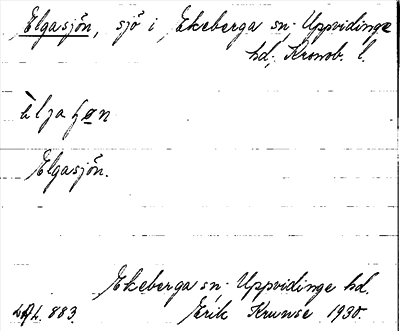 Elgasjön, sjö i Ekeberga sn. Uppvidinge
hd., Kronob. l.
Elgasjön.
Ekeberga sn. Uppvidinge hd.
883. Erik Krunse 1930.